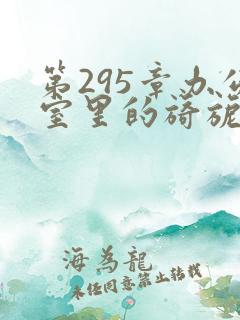 第295章办公
室里的旖旎
海为龙
未经同意禁止转载